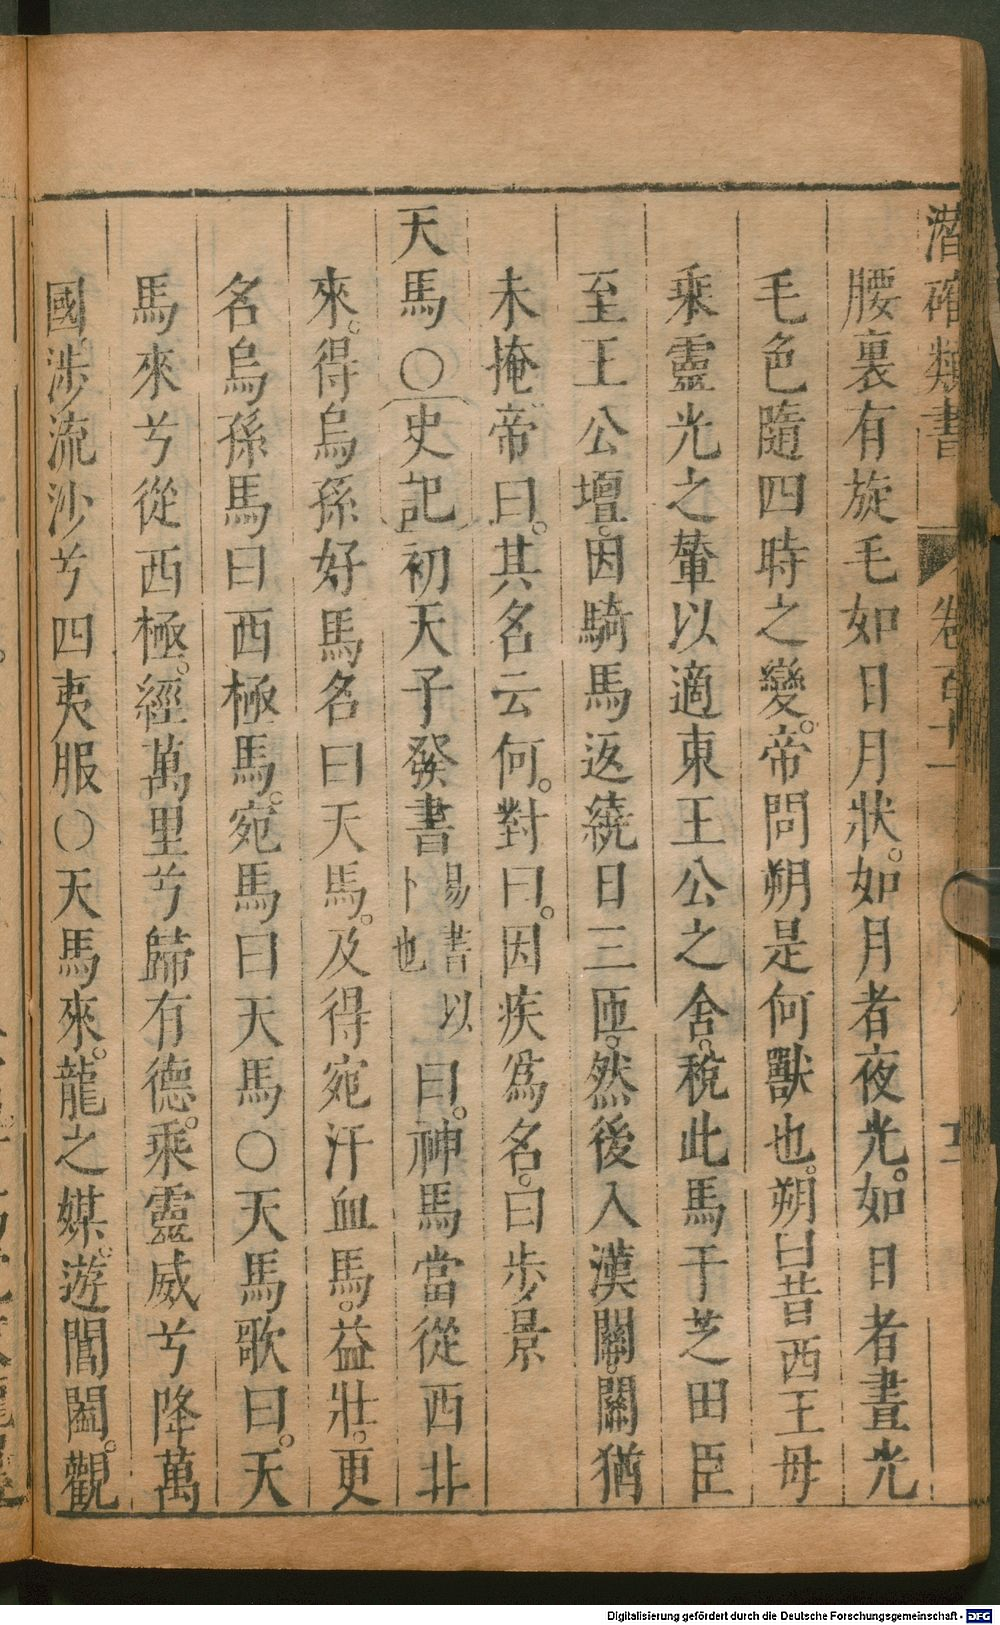 潛確類書 卷百十一 十二
腰裏有旋毛如日月狀。如月者夜光。如日者晝光
毛色隨四時之變。帝問朔是何獸也。朔曰昔西王母
乘靈光之輦以適東王公之舍。稅此馬于芝田臣
至王公壇。因騎馬返繞日三匝。然後入漢關。關猶
未掩帝曰。其名云何。對曰。因疾爲名。曰步景
天馬○史記初天子發書易書以卜也曰。神馬當從西北
來。得烏孫好馬名曰天馬。及得宛汗血馬。益壯。更
名烏孫馬曰西極馬。宛馬曰天馬○天馬歌曰。天
馬來兮從西極。經萬里兮歸有德。乘靈威兮降萬
國。涉流沙兮四夷服○天馬來。龍之媒。遊閶闔。觀
Digitalisierung gefördert durch die Deutsche Forschungsgemeinschaft - DFG